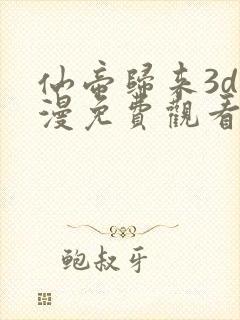 仙帝歸來3d
漫免費觀看
鮑叔牙